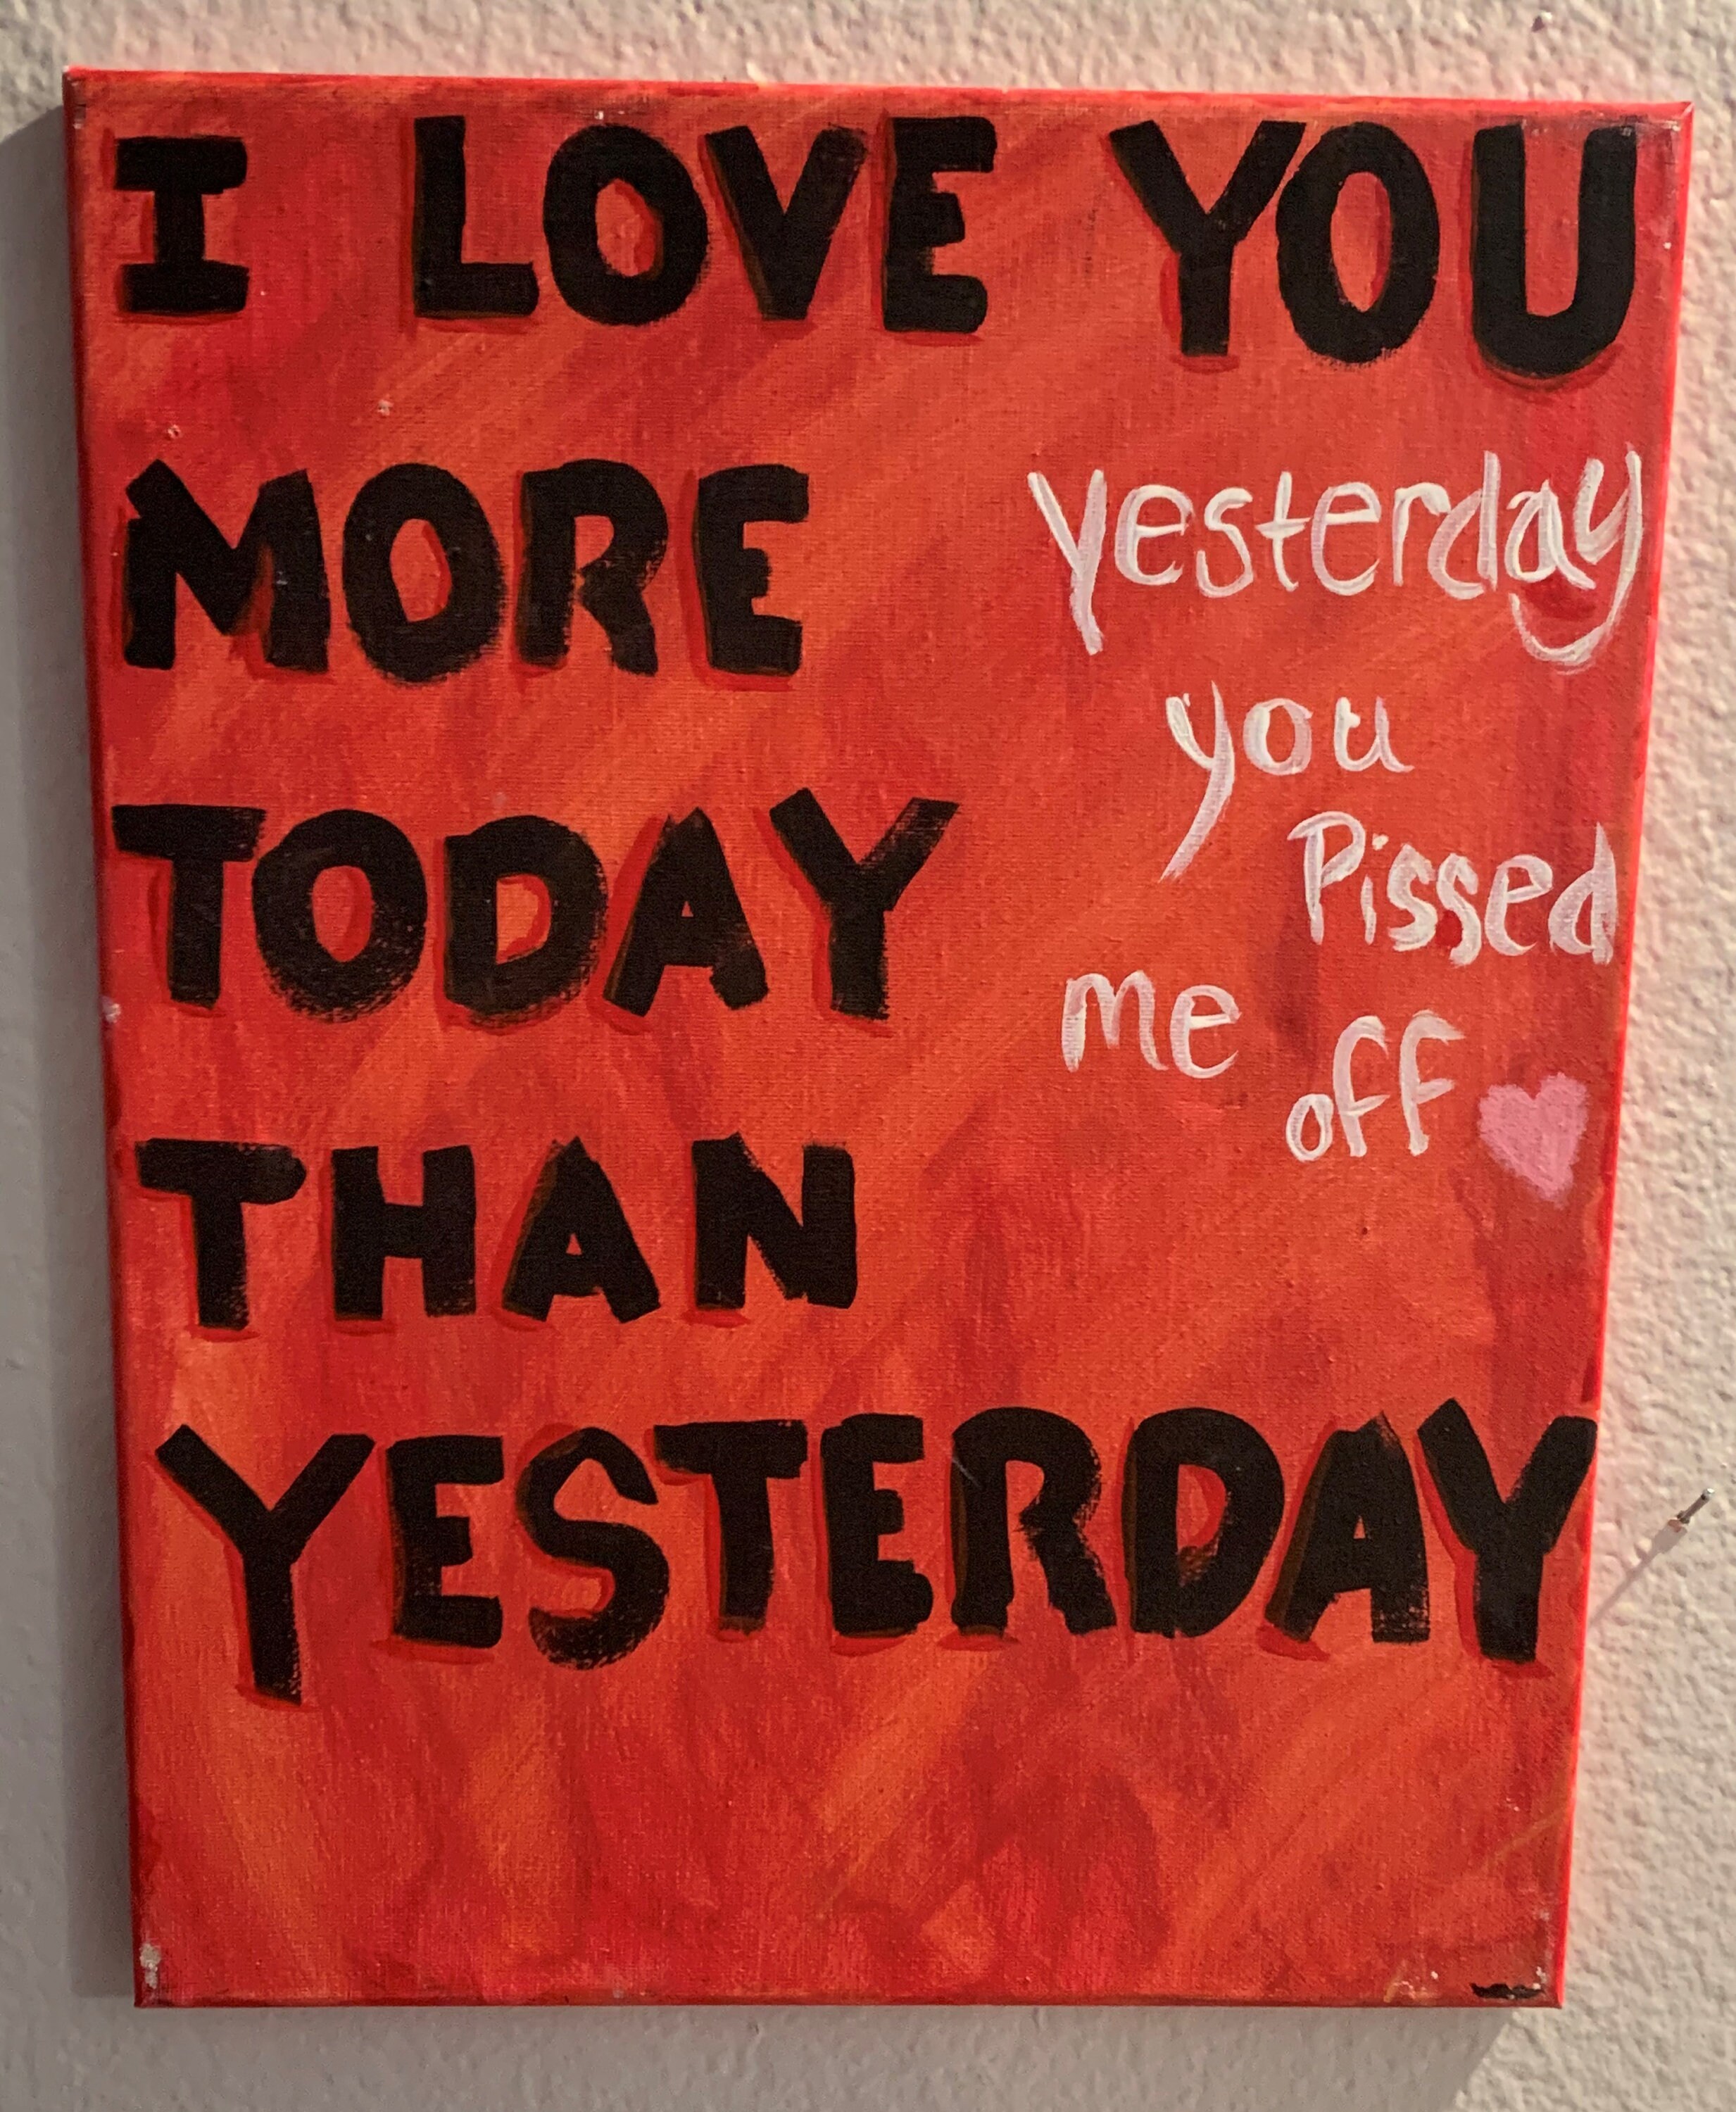 I LOVE YOU
MORE
TODAY
THAN
YESTERDAY
yesterday
you
Pissed
me
off